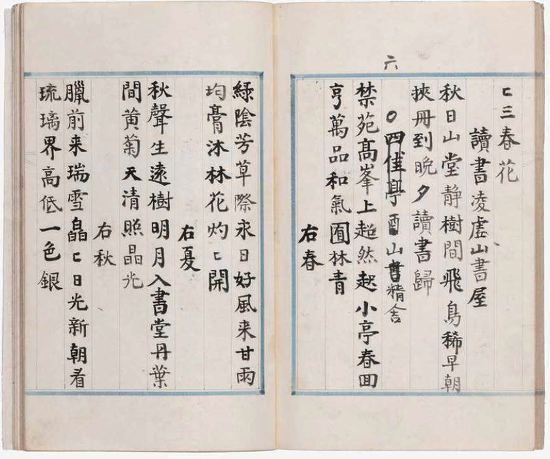 六
匕三春花
讀書凌虛山書屋
秋日山堂静樹間飛鳥稀早朝
挾冊到晚夕讀書歸
〇四佳亭酉山書精舍
禁苑高峯上超然起小亭春回
亨萬品和氣囿林青
右春
綠陰芳草際永日好風来甘雨
均膏沐林花灼匕開
右夏
秋聲生遠樹明月入書堂丹葉
間黄菊天清照晶光
右秋
臘前来瑞雪皛匕日光新朝看
琉璃界高低一色銀